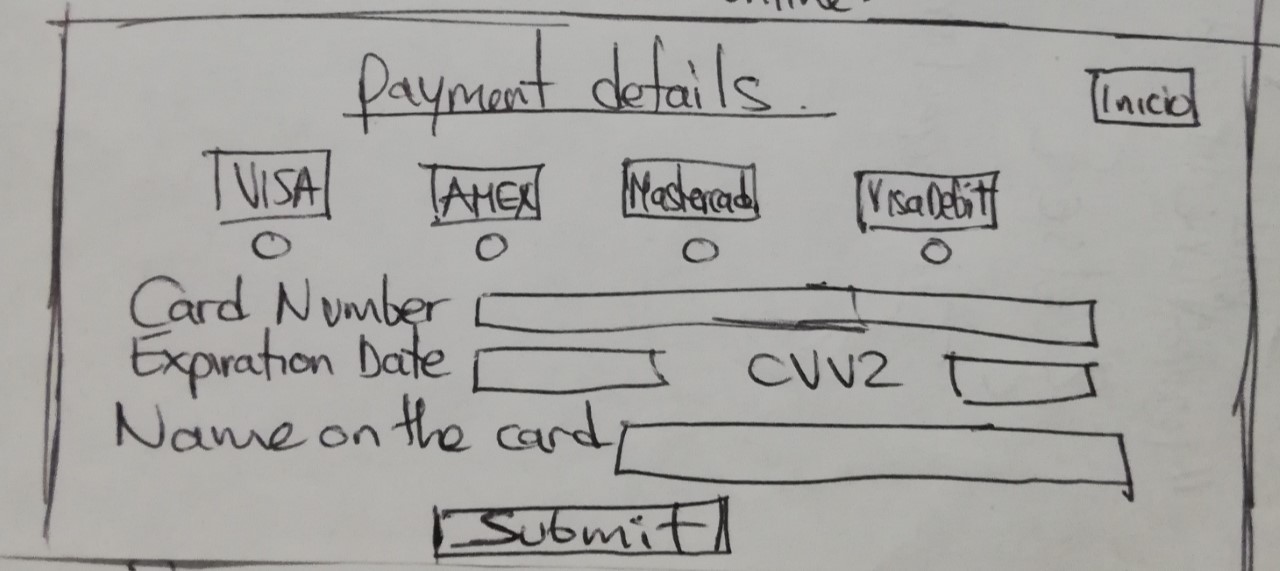 online.
Payment details.
Inicio
VISA AMEX Mastercad VisaDebit
Card Number
Expiration Date CVV2
Name on the card
Submit